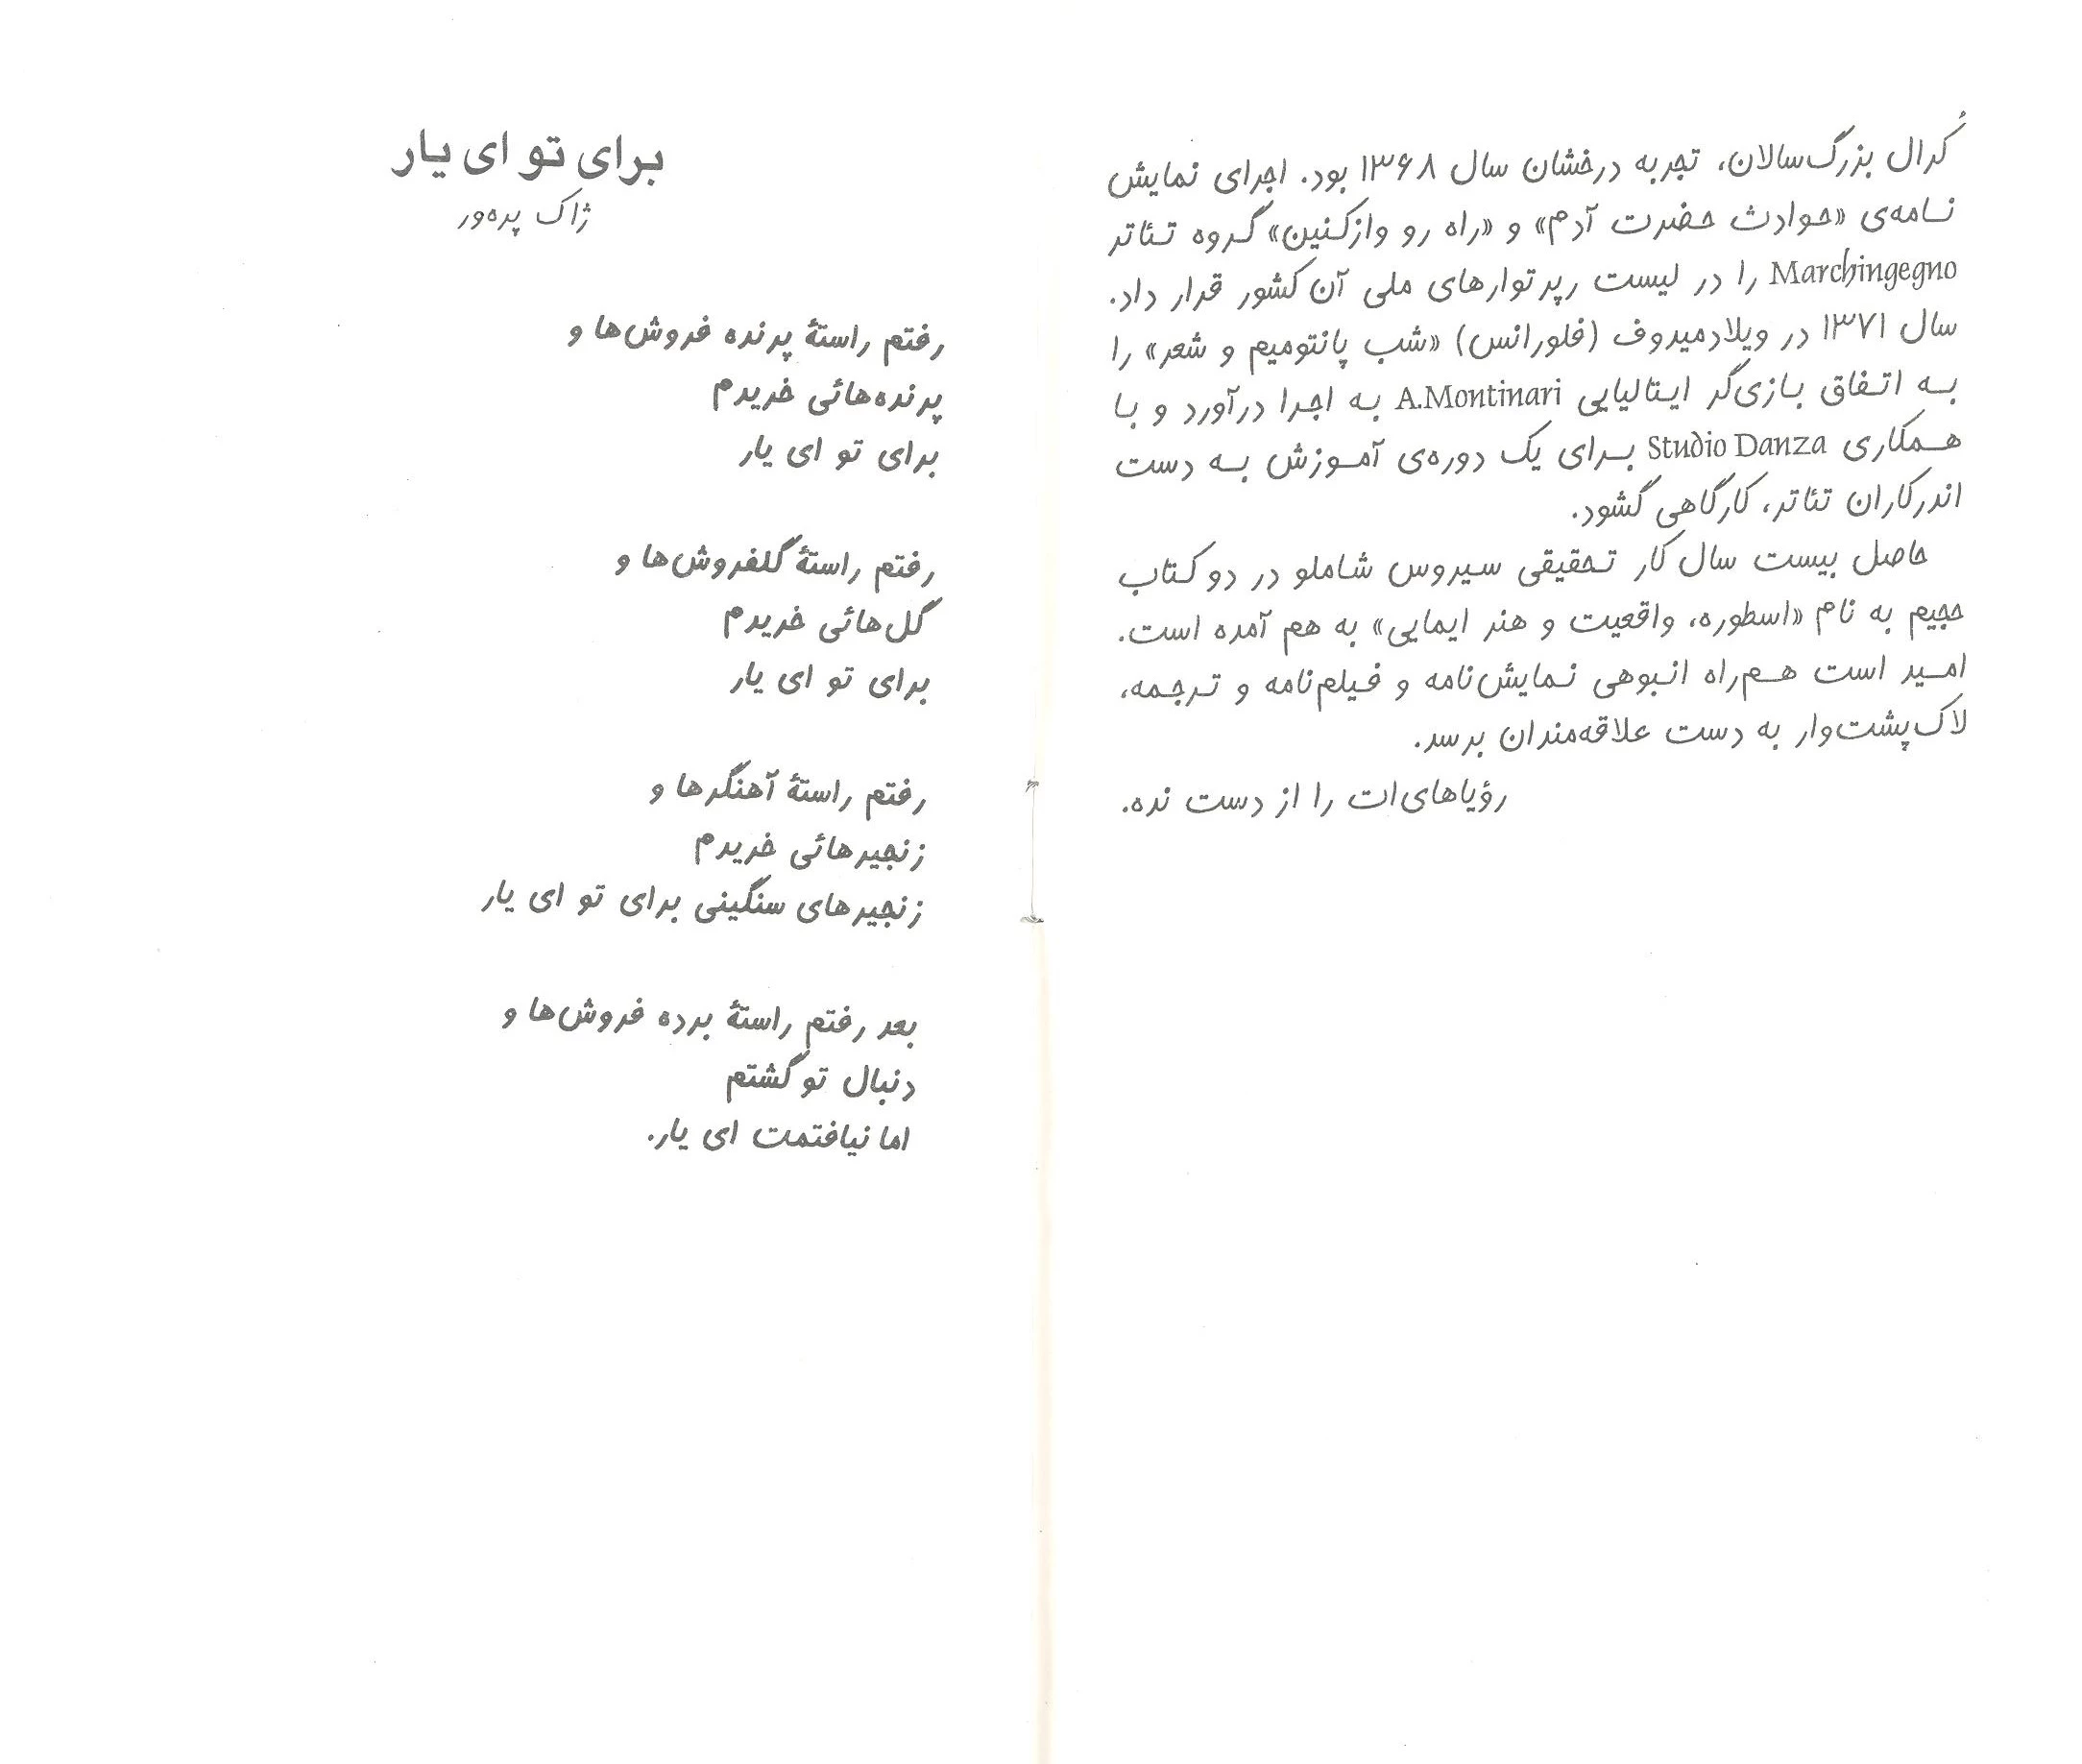 کُرال بزرگ‌سالان، تجربه درخشان سال ۱۳۶۸ بود. اجرای نمایش
نامه‌ی «حوادث حضرت آدم» و «راه رو وازکنین» گروه تئاتر
Marchingegno را در لیست رپرتوارهای ملی آن کشور قرار داد.
سال ۱۳۷۱ در ویلادمیدوف (فلورانس) «شب پانتومیم و شعر» را
به اتفاق بازی‌گر ایتالیایی A.Montinari به اجرا درآورد و با
همکاری Studio Danza برای یک دوره‌ی آموزش به دست
اندرکاران تئاتر، کارگاهی گشود.
حاصل بیست سال کار تحقیقی سیروس شاملو در دو کتاب
حجیم به نام «اسطوره، واقعیت و هنر ایمایی» به هم آمده است.
امید است هم‌راه انبوهی نمایش‌نامه و فیلم‌نامه و ترجمه،
لاک‌پشت‌وار به دست علاقه‌مندان برسد.
رؤیاهای‌ات را از دست نده.
برای تو ای یار
ژاک پره‌ور
رفتم راستهٔ پرنده فروش‌ها و
پرنده‌هائی خریدم
برای تو ای یار
رفتم راستهٔ گلفروش‌ها و
گل‌هائی خریدم
برای تو ای یار
رفتم راستهٔ آهنگرها و
زنجیرهائی خریدم
زنجیرهای سنگینی برای تو ای یار
بعد رفتم راستهٔ برده فروش‌ها و
دنبال تو گشتم
اما نیافتمت ای یار.